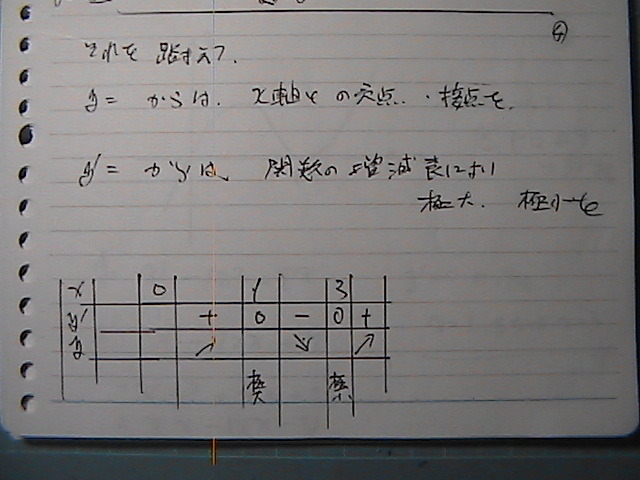 それを踏まえて、
y= からは、x軸との交点・接点を、
y'= からは、関数の増減表により
極大、極小を
x 0 1 3
y' + 0 - 0 +
y ↗ ↘ ↗
極大 極小